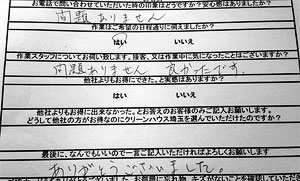 お電話で問い合わせていただいた時の印象はどうですか?安心感はありましたか?
問題ありません
作業はご希望の日程通りに伺えましたか?
はい いいえ
作業スタッフについてお伺い致します。接客、又は作業中に気になったことはございますか?
問題ありません 良かったです
他社よりもお得にできた。と実感はありますか?
はい いいえ
他社よりもお得に出来なかった。とお答えのお客様のみご記入お願いします。
どうして他社の方がお得なのにクリーンハウス埼玉を選んでいただけたのですか?
最後に、なんでもいいので一言ご記入いただければよろしくお願いします
ありがとうございました。